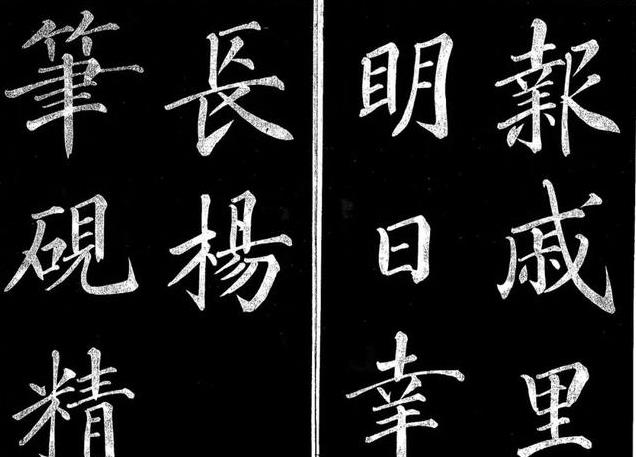 報戚里
明日幸
長楊
筆硯精